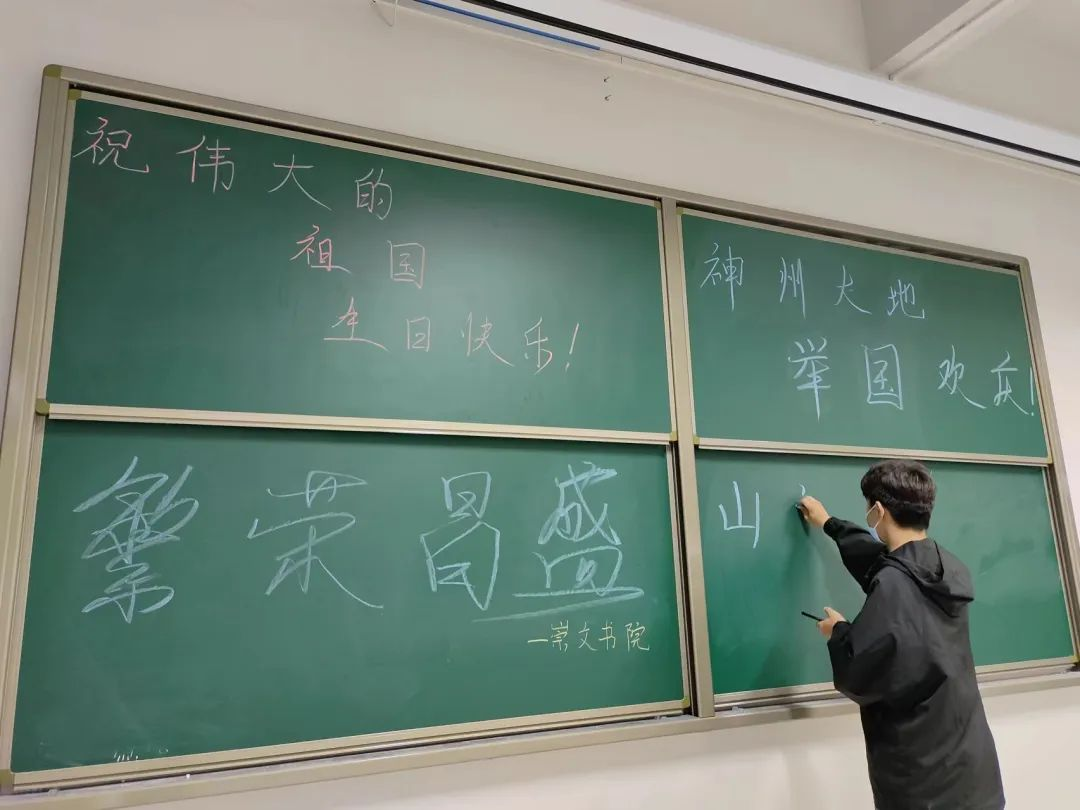 祝伟大的
祖国
生日快乐!
神州大地
举国欢庆!
繁荣昌盛
一崇文书院
山